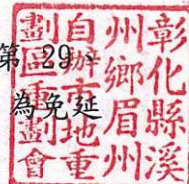 彰化縣溪
州鄉眉州
自辦市地重
劃區重劃會
第 29、
為免延